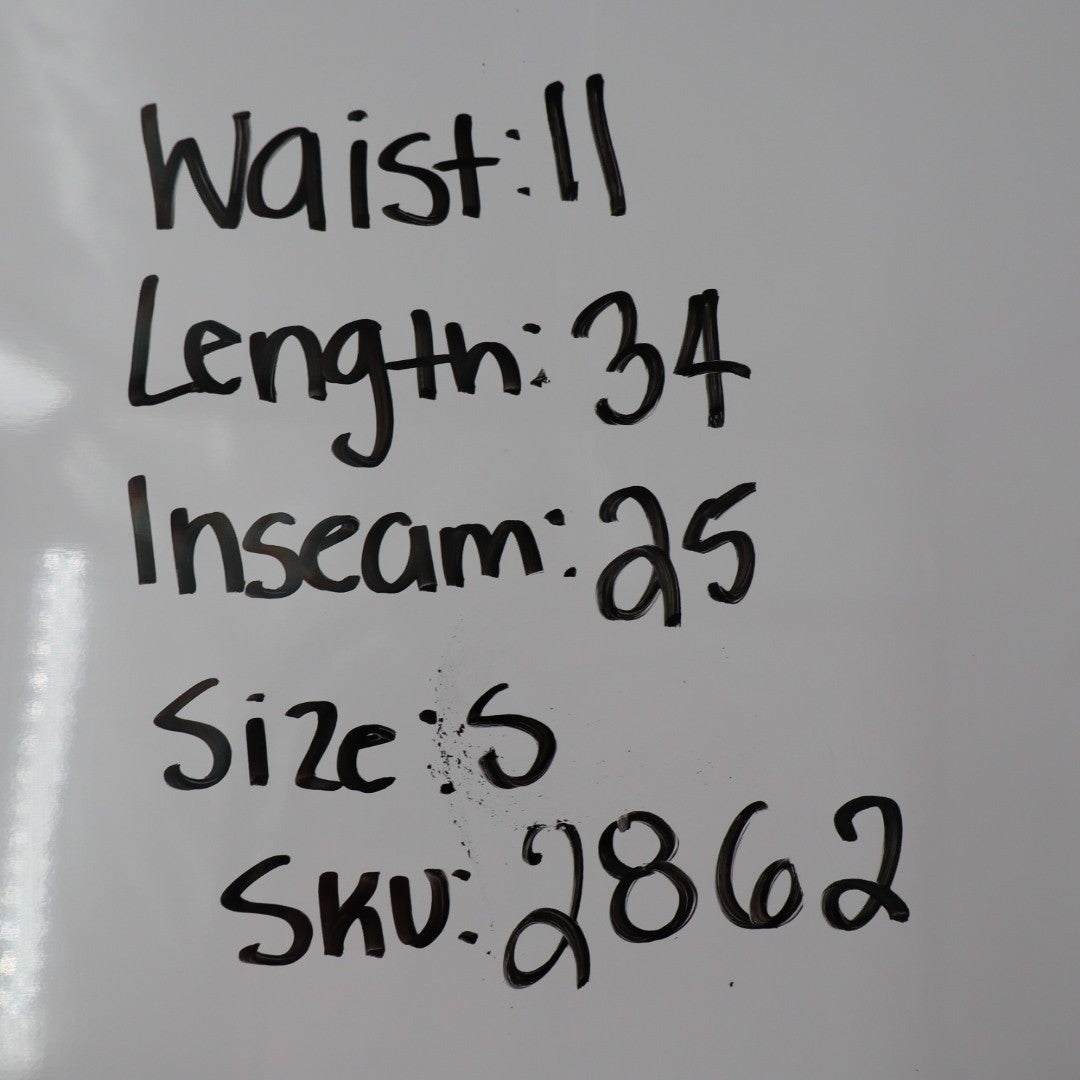 Waist: 11
Length: 34
Inseam: 25
Size: S
SKU: 2862